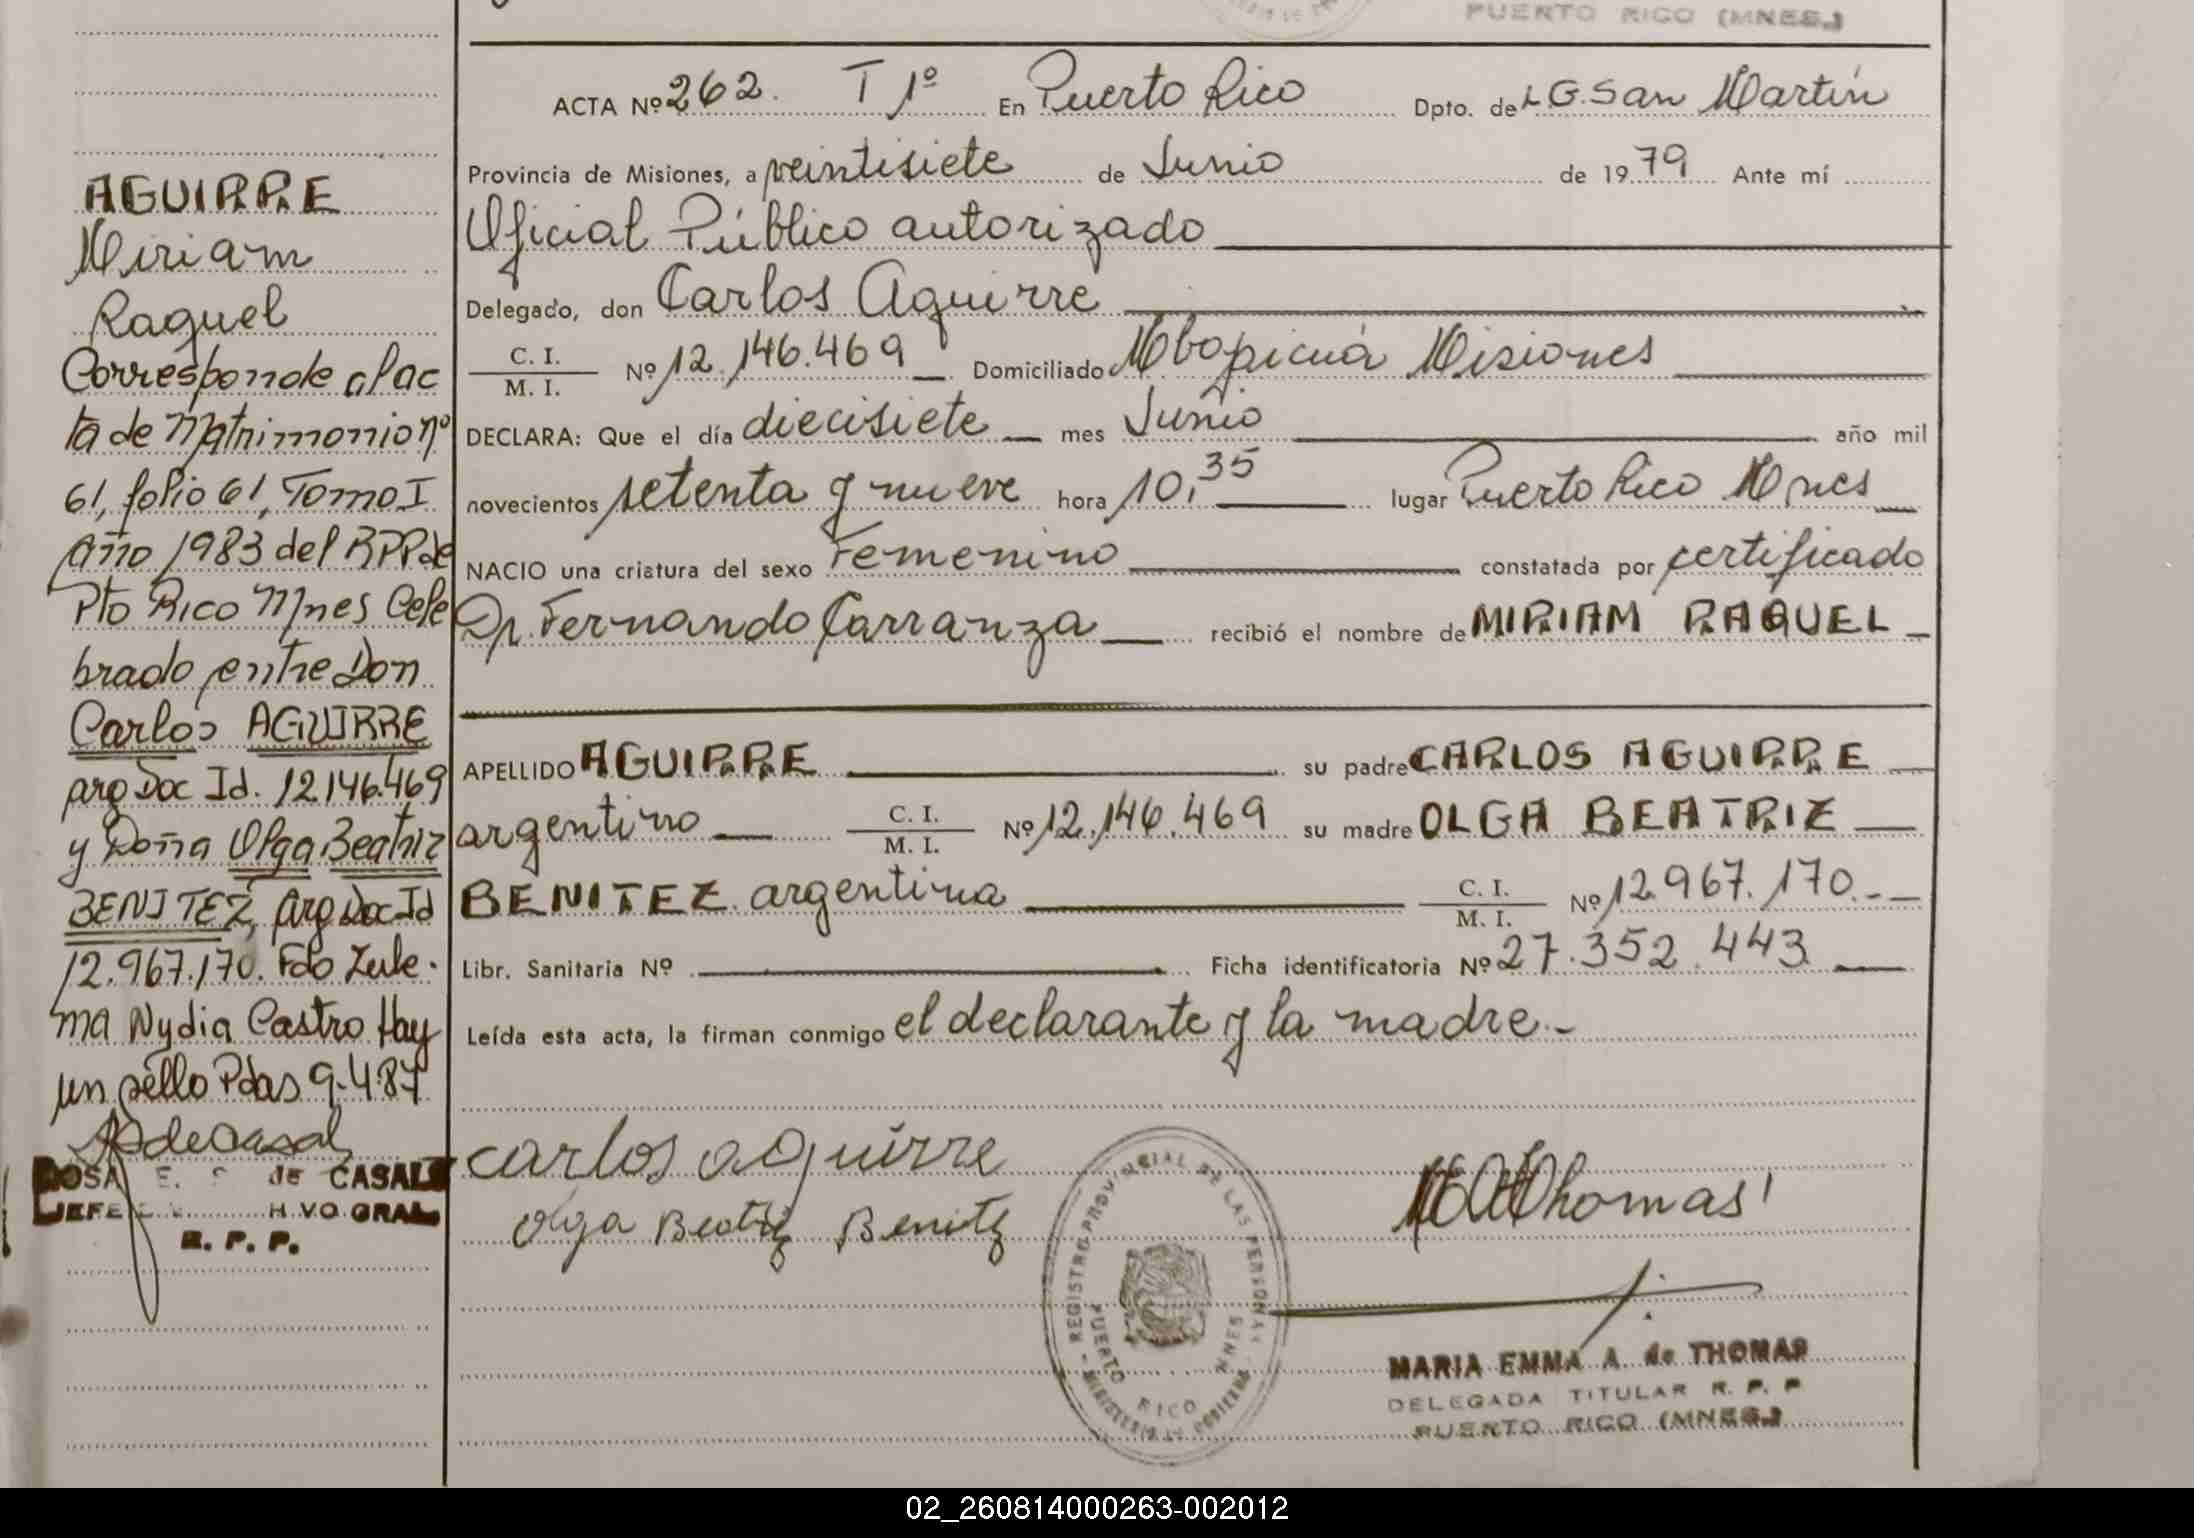 PUERTO RICO (MNES.)
ACTA Nº 262. T 1º En Puerto Rico Dpto. de L G. San Martín
Provincia de Misiones, a veintisiete de Junio de 1979 Ante mí
Oficial Público autorizado
Delegado, don Carlos Aguirre
C. I.
M. I.
Nº 12.146.469 Domiciliado Mbopicuá Misiones
DECLARA: Que el día diecisiete mes Junio año mil
novecientos setenta y nueve hora 10,35 lugar Puerto Rico Mnes
NACIO una criatura del sexo Femenino constatada por certificado
Dr. Fernando Carranza recibió el nombre de MIRIAM RAQUEL
APELLIDO AGUIRRE su padre CARLOS AGUIRRE
argentino C. I. M. I. Nº 12.146.469 su madre OLGA BEATRIZ
BENITEZ argentina C. I. M. I. Nº 12.967.170.-
Libr. Sanitaria Nº Ficha identificatoria Nº 27.352.443
Leída esta acta, la firman conmigo el declarante y la madre.-
carlos aguirre
Olga Beatriz Benitz
Thomas
REGISTRO PROVINCIAL DE LAS PERSONAS
PUERTO RICO MNES
MINISTERIO DE GOBIERNO
MARIA EMMA A. de THOMAS
DELEGADA TITULAR R. P. P
PUERTO RICO (MNES.)
AGUIRRE
Miriam
Raquel
Corresponde al ac
ta de Matrimonio nº
61, folio 61, Tomo I
año 1983 del RPP de
Pto Rico Mnes Cele
brado entre Don
Carlos AGUIRRE
arg Doc Id. 12.146.469
y Doña Olga Beatriz
BENITEZ, arg Doc Id
12.967.170. Fdo Zule-
ma Nydia Castro Hay
un sello Pdas 9-4-87
de Casal
ROSA E. de CASALS
JEFE GRAL
R. P. P.
02_260814000263-002012